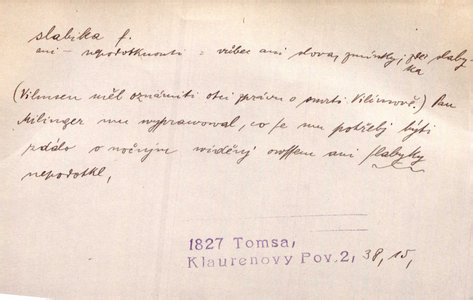 slabika f.
ani – nepodotknouti = vůbec ani slova, zmínky; zde slaby-
ka
(Vilmsen měl oznámiti otci zprávu o smrti Vilímově.) Pan
Ailinger mu wyprawowal, co se mu potřebj býti
zdálo o nočnjm widěnj owssem ani slabyky
nepodotkl,
1827 Tomsa,
Klaurenovy Pov. 2, 38, 15,